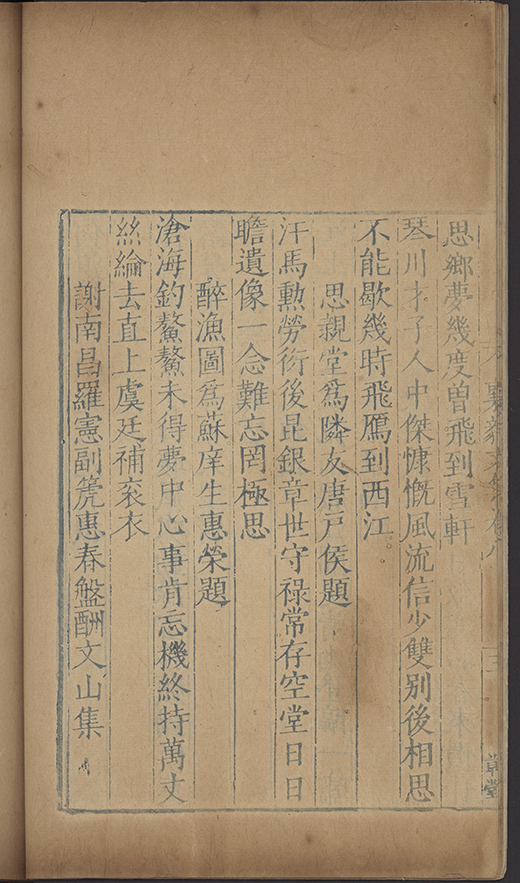 思鄉夢幾度曽飛到雪軒
琴川才子人中傑慷慨風流信少雙別後相思
不能歇幾時飛鴈到西江
思親堂爲隣友唐戸侯題
汗馬勲勞衍後昆銀章世守祿常存空堂日日
瞻遺像一念難忘罔極思
醉漁圖爲蘇庠生惠榮題
滄海釣鰲鰲未得夢中心事肯忘機終持萬丈
絲綸去直上虞廷補衮衣
謝南昌羅憲副箎惠春盤酬文山集
草堂